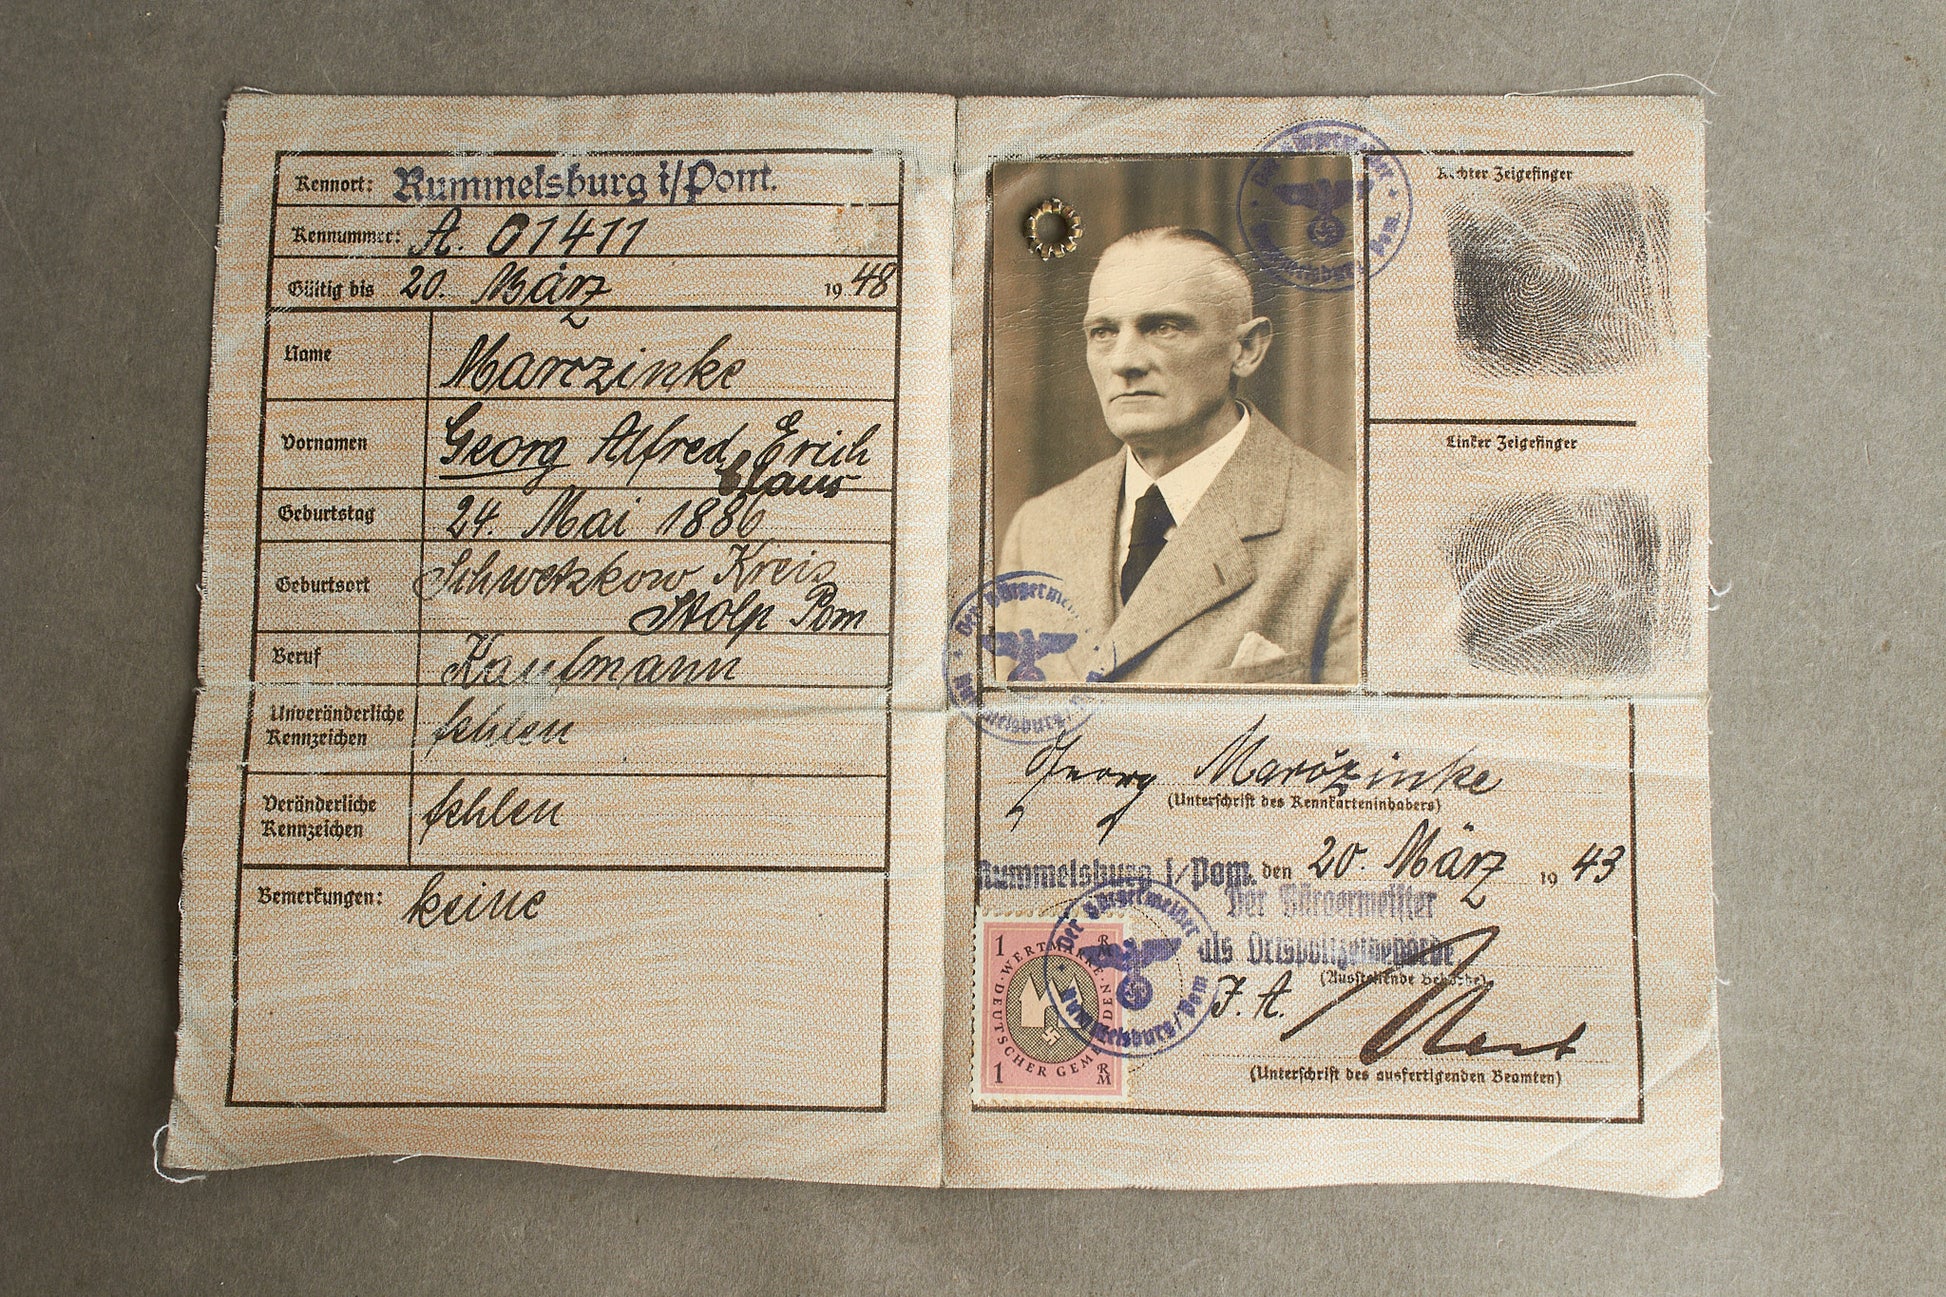 Kennort: Rummelsburg i/Pom.
Kennummer: A. 01411
Gültig bis 20. März 1948
Name Marczinke
Vornamen Georg Alfred Erich
Claus
Geburtstag 24. Mai 1886
Geburtsort Schwetzkow Kreis
Stolp Pom
Beruf Kaufmann
Unveränderliche Kennzeichen fehlen
Veränderliche Kennzeichen fehlen
Bemerkungen: keine
Der Bürgermeister
Rummelsburg/Pom
Rechter Zeigefinger
Linker Zeigefinger
Der Bürgermeister
Rummelsburg/
Georg Marczinke
(Unterschrift des Kennkarteninhabers)
Rummelsburg i/Pom. den 20. März 1943
Der Bürgermeister
als Ortspolizeibehörde
(Ausstellende Behörde)
J. A.
(Unterschrift des ausfertigenden Beamten)
Der Bürgermeister
Rummelsburg/Pom
1 RM
WERTMARKE DEUTSCHER GEMEINDEN
1 RM